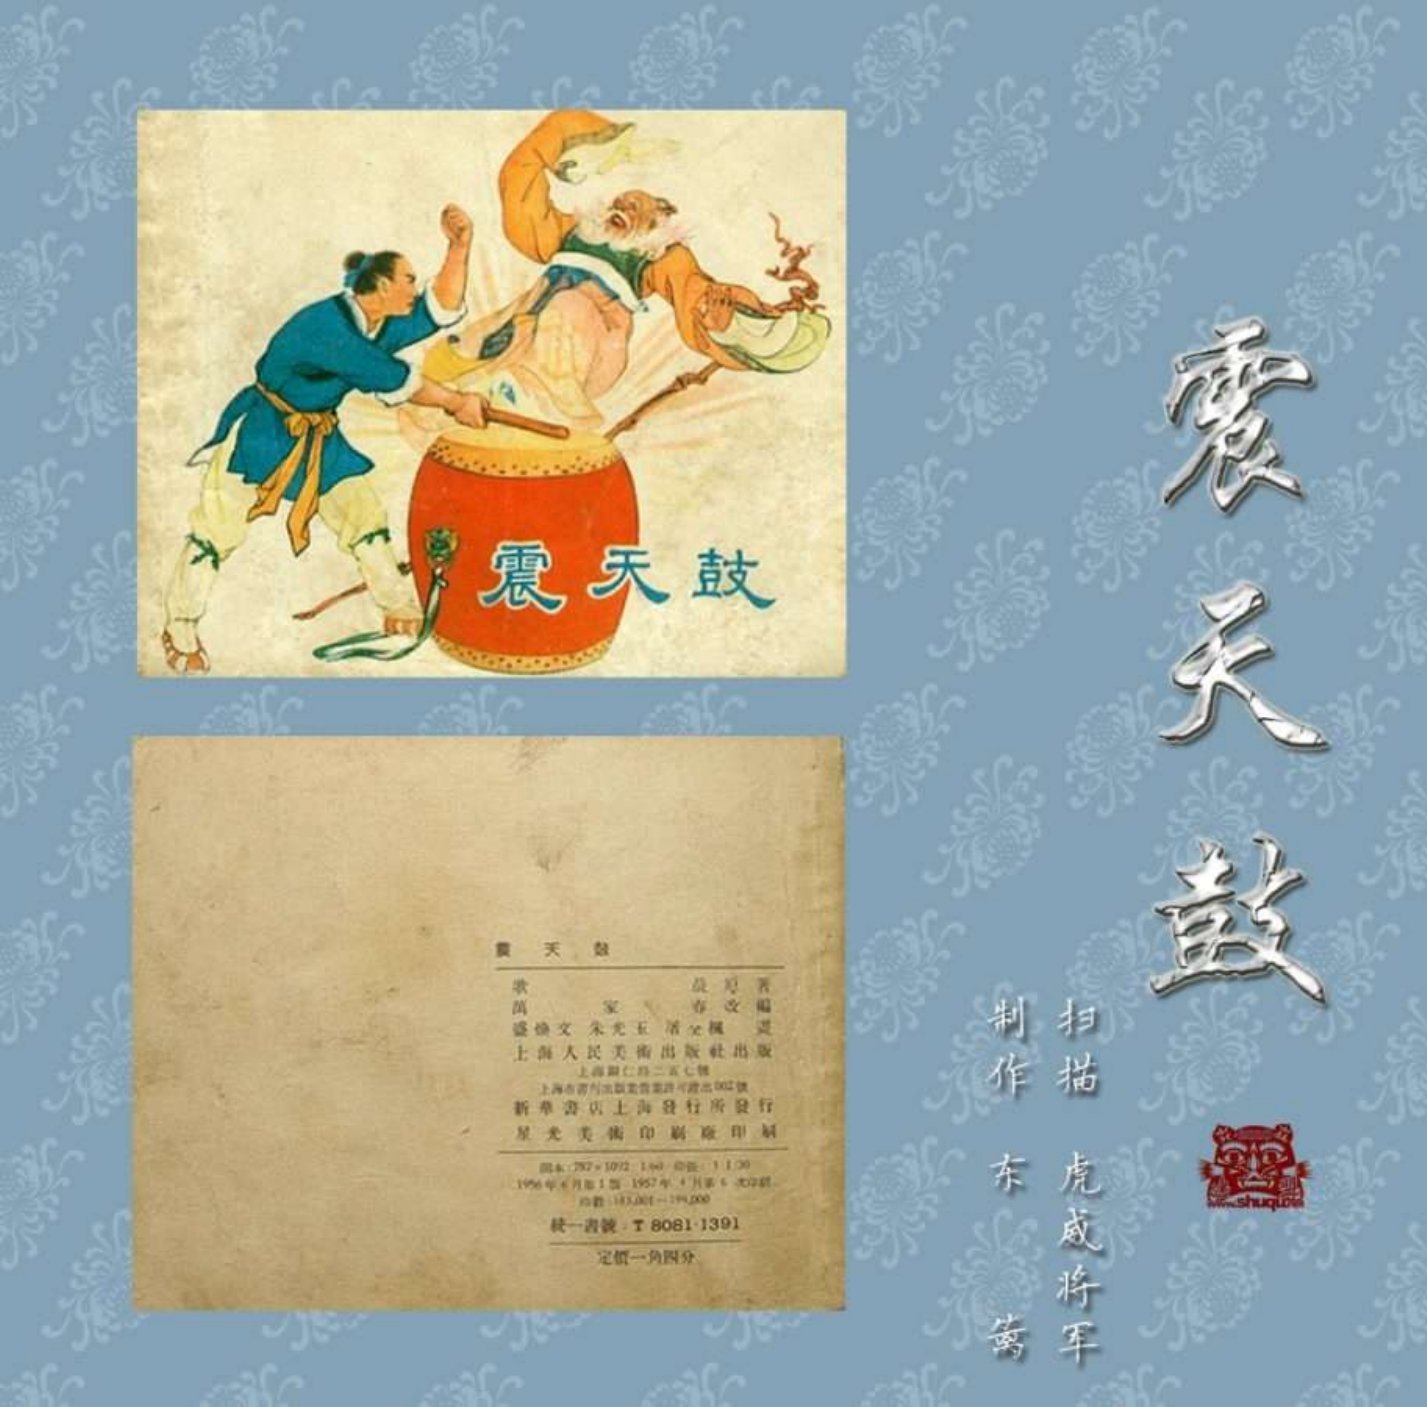 震天鼓
震天鼓
扫描 虎威将军
制作 东篱
www.shuqu.net
震天鼓
歌 晨原著
萬家春改編
盛煥文 朱光玉 屠 楓 畫
上海人民美術出版社出版
上海銅仁路二五七號
上海市書刊出版業營業許可證出002號
新華書店上海發行所發行
星光美術印刷廠印刷
開本:787×1092 1/60 印張:1 1/30
1956年6月第1版 1957年4月第6次印刷
印數:183,001—198,000
統一書號:T 8081·1391
定價一角四分